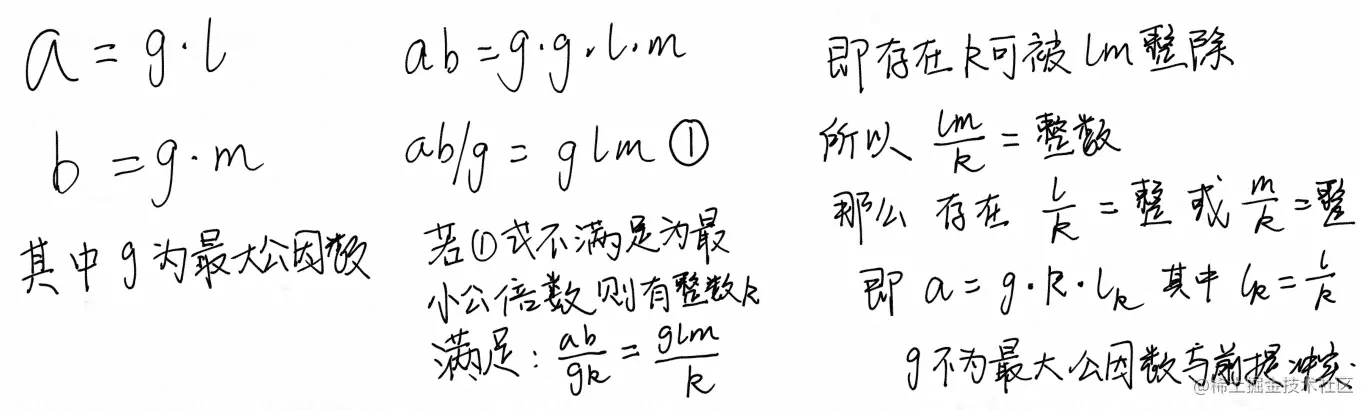 a = g·l
b = g·m
其中 g 为最大公因数
ab = g·g·l·m
ab/g = glm ①
若①式不满足为最
小公倍数则有整数k
满足: ab/gk = glm/k
即存在k可被lm整除
所以 lm/k = 整数
那么 存在 l/k = 整 或 m/k = 整
即 a = g·k·lₖ 其中 lₖ = l/k
g不为最大公因数与前提冲突.
@稀土掘金技术社区